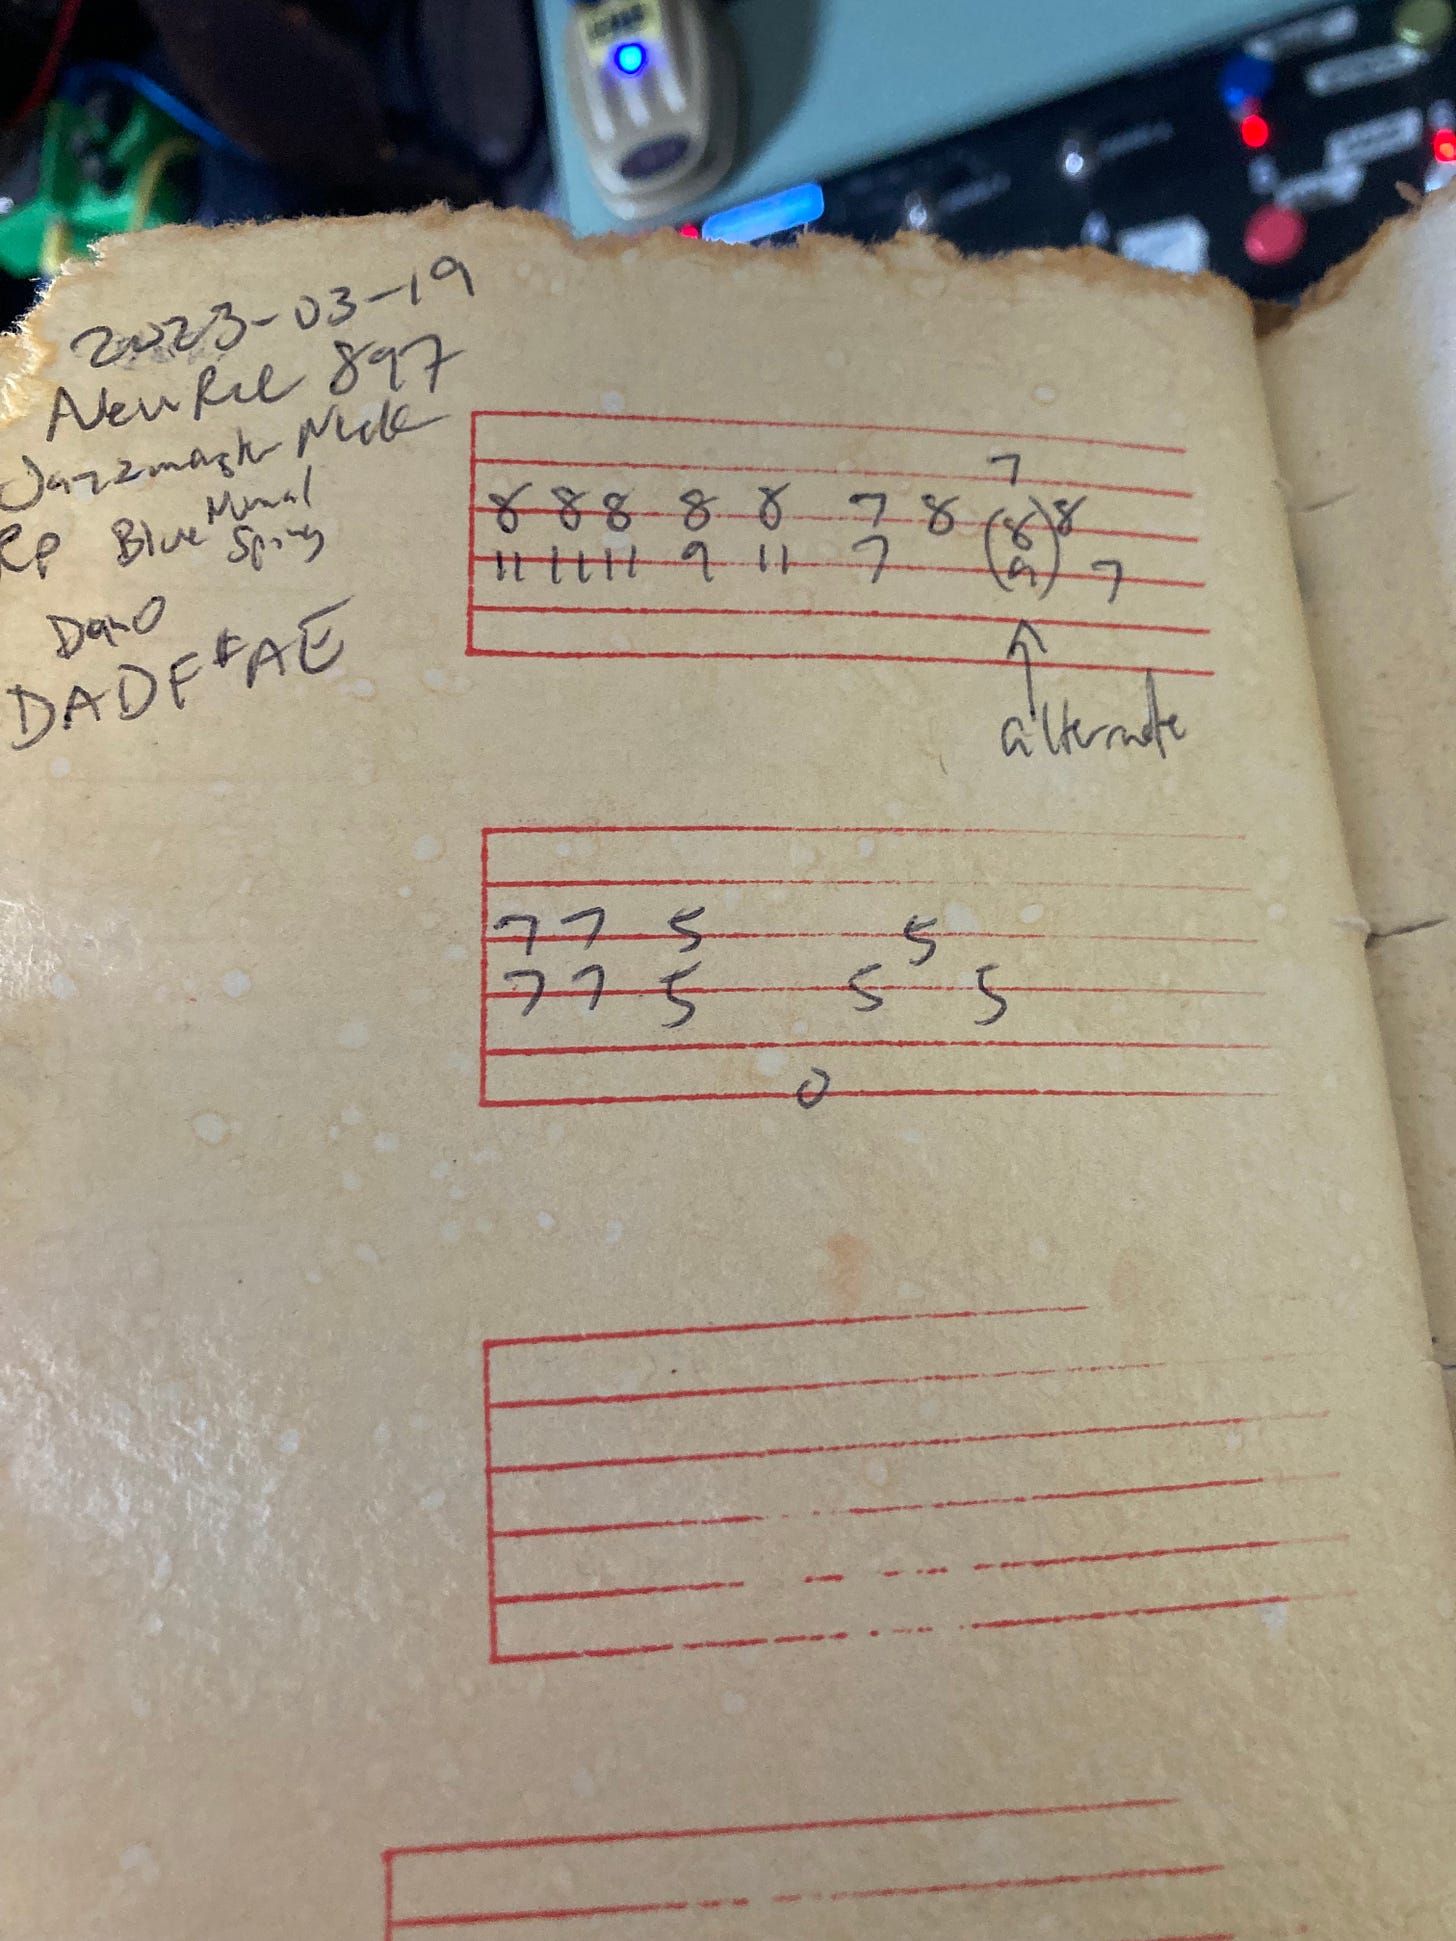 2023-03-19
Neu Rec 897
Jazzmaster Neck
RP Blue
Dano
DADF#AE
7
8 8 8 8 8 7 8 (8 8
11 11 11 9 11 7 9) 7
alternate
7 7 5 5
7 7 5 5 5
0